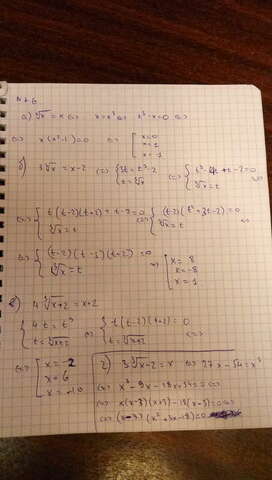 N + 6
а) ∛x = x (=) x = x³ (=) x³ - x = 0 (=)
(=) x(x² - 1) = 0 (=) [ x = 0
x = 1
x = -1
б) 3∛x = x - 2 (=) { 3t = t³ - 2
t = ∛x (=) { t³ - 4t + t - 2 = 0
∛x = t (=)
(=) { t(t-2)(t+2) + t - 2 = 0
∛x = t (=) { (t-2)(t² + 2t - 2) = 0
∛x = t
(=) { (t-2)(t-1)(t+2) = 0
∛x = t (=) [ x = 8
x = -8
x = 1
в) 4∛x+2 = x + 2
{ 4t = t³
t = ∛x+2 (=) { t(t-2)(t+2) = 0
t = ∛x+2 (=)
(=) [ x = -2
x = 6
x = -10
г) 3∛x-2 = x (=) 27x - 54 = x³
(=) x³ - 9x - 18x + 54 = 0 (=)
(=) x(x-3)(x+3) - 18(x-3) = 0 (=)
(=) (x-3)(x² + 3x - 18) = 0